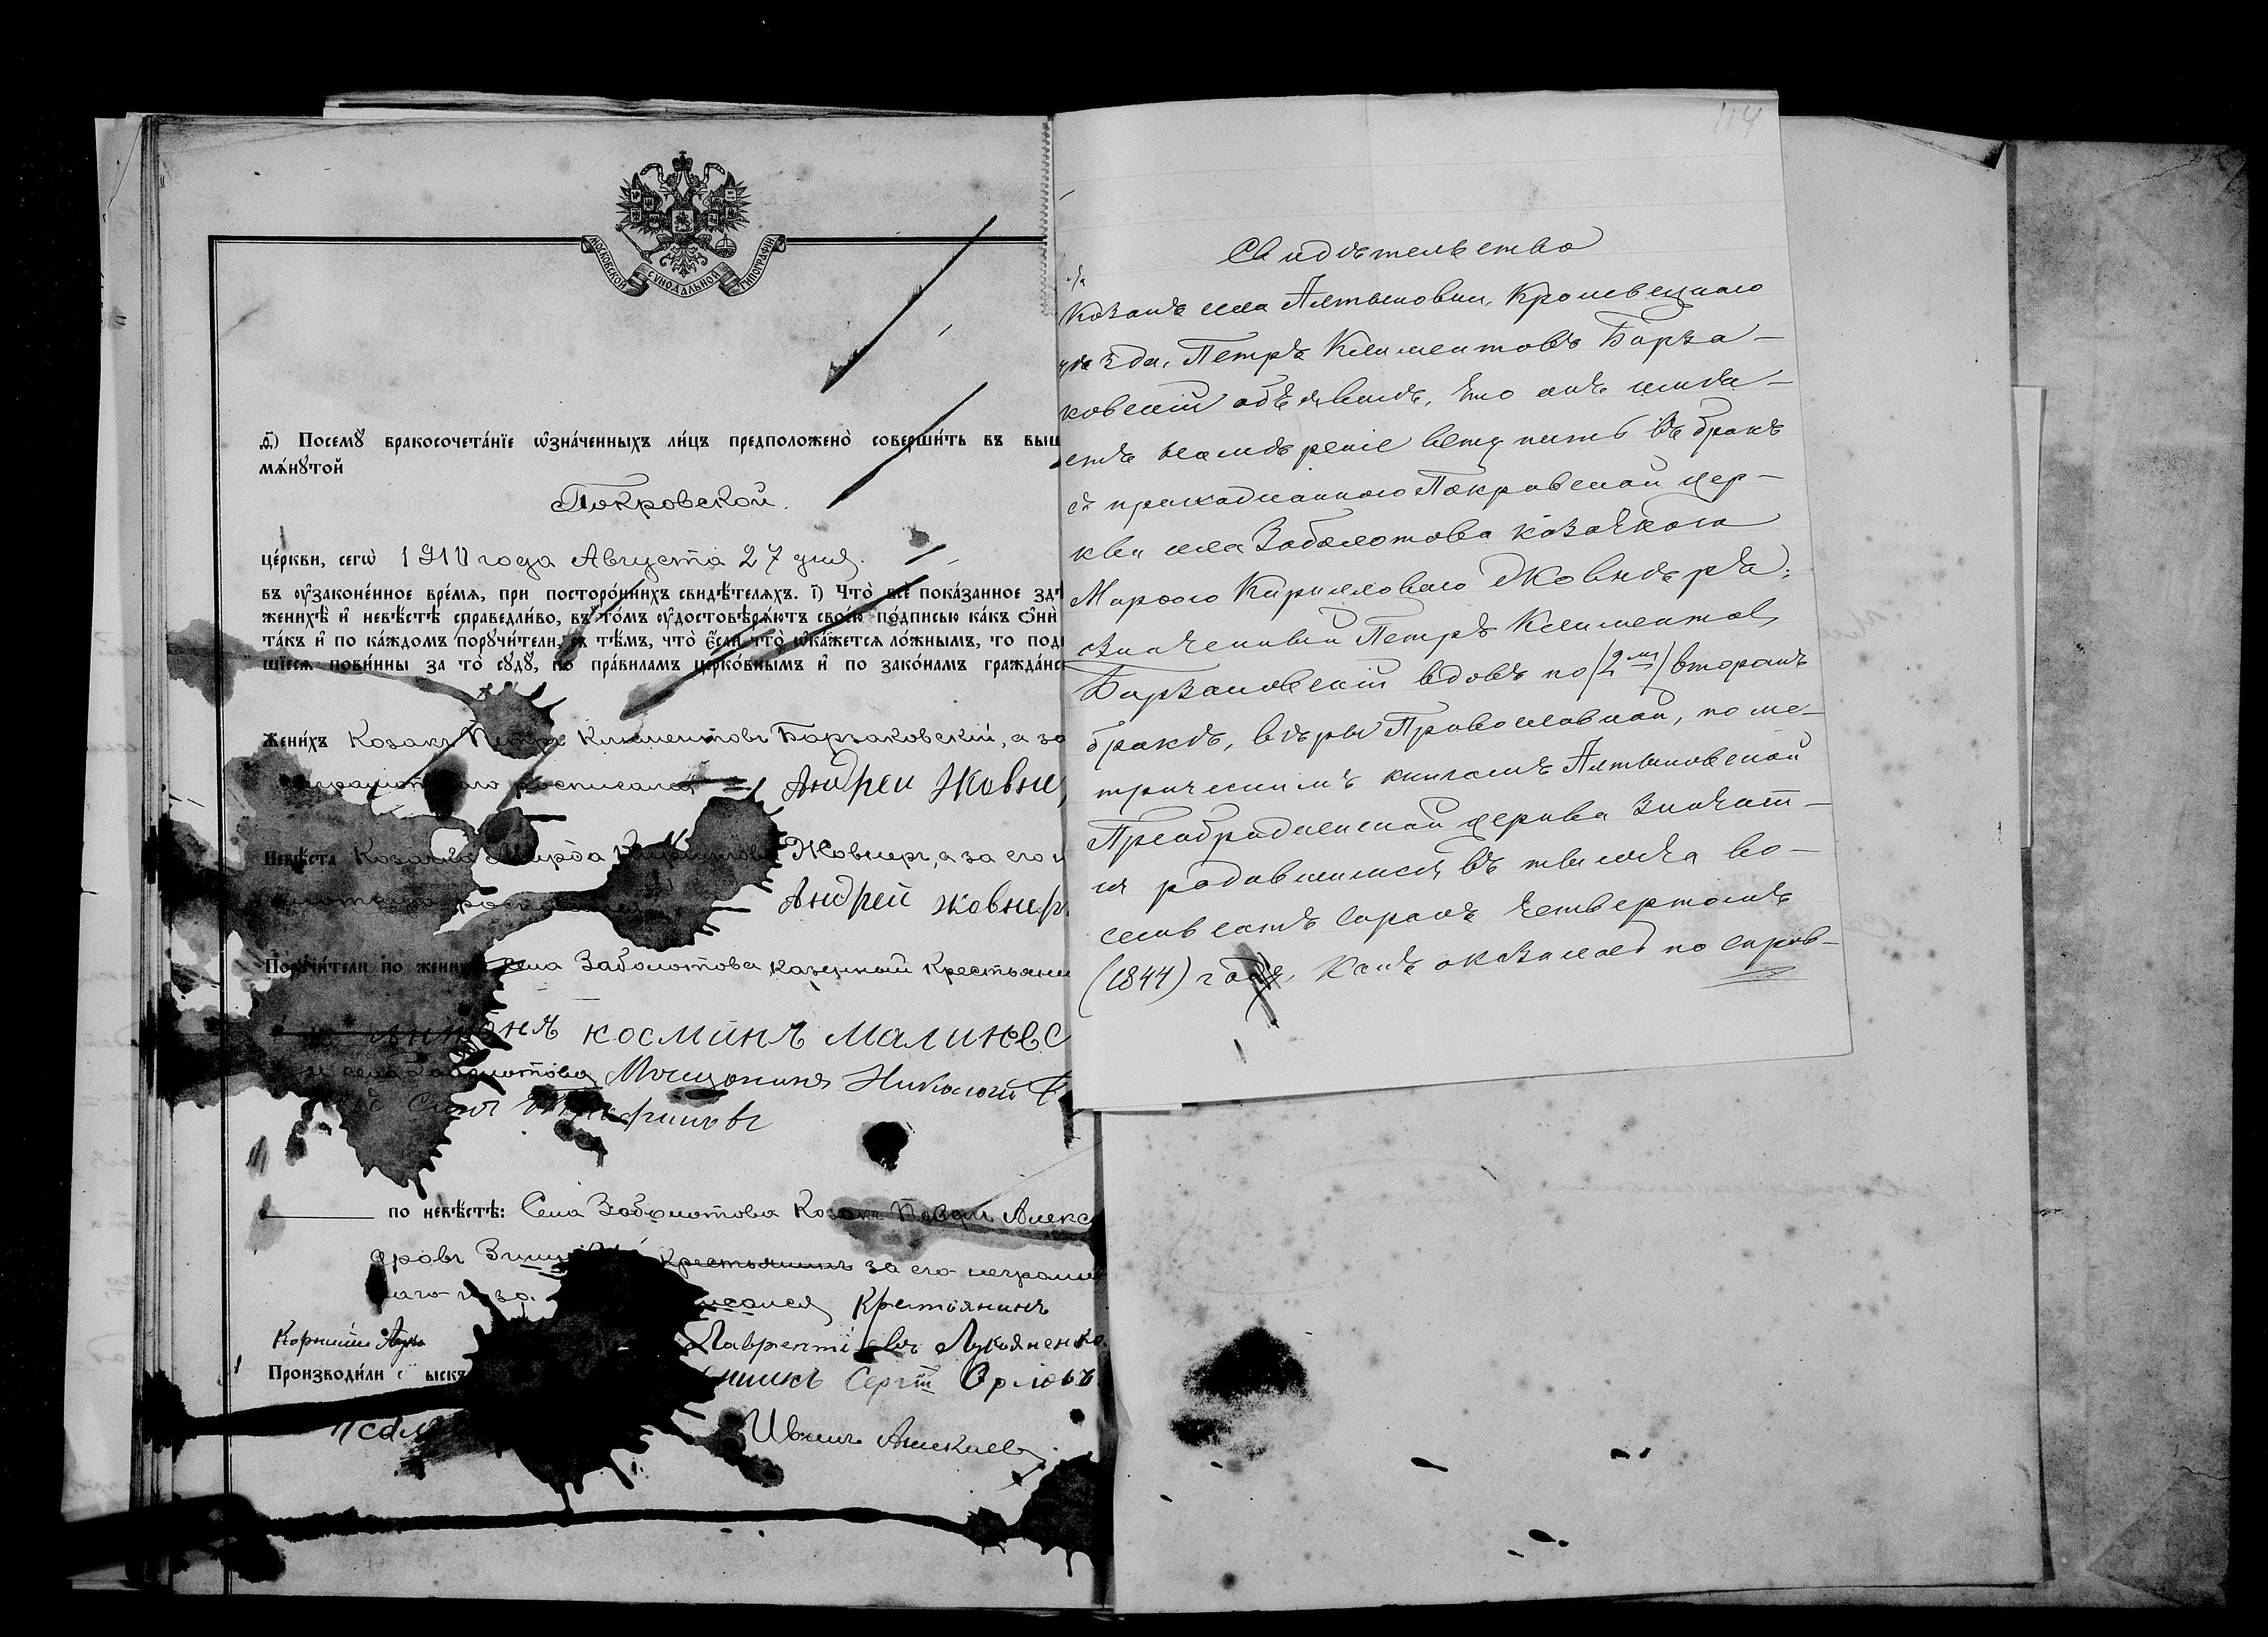 МОСКОВСКОЙ СѴНОДАЛЬНОЙ ТИПОГРАФІИ
ѳ҃) Посемꙋ̀ бракосочета́нїе ѡ҆зна́ченныхъ ли́цъ предположено̀ соверши́ть въ выш
мѧ́нꙋтой
Покровской.
це́ркви, сегѡ̀ 1910 года Августа 27 дня.
въ ᲂу҆законе́нное вре́мѧ, при посторо́ннихъ свидѣ́телѧхъ. і҃) Что̀ всѐ пока́занное здѣ
женихѣ̀ и҆ невѣ́стѣ справедли́во, въ то́мъ ᲂу҆достовѣрѧ́ютъ свое́ю по́дписью ка́къ ѻ҆нѝ
та́къ и҆ по ка́ждомъ порꙋчи́тели, съ тѣ́мъ, что̀ є҆́сли что̀ ѡ҆ка́жетсѧ ло́жнымъ, то под
шїесѧ пови́нны за то̀ сꙋдꙋ̀, по пра́виламъ церко́внымъ и҆ по зако́намъ гражда́нс
Жени́хъ Козакъ Петръ Климентовъ Барзаковскій, а за
росписался Андрей Жовне
Невѣ́ста Козачка Марѳа Жовнеръ, а за его
Андрей жовнер
Порꙋчи́тели по жених села Заболотова казенный Крестьяни
космінъ малинвс
и села Заболотова Мещанинъ Николай
сынъ
по невѣ́стѣ: Села Заболотова Козакъ Павелъ Алекс
дровъ крестьянинъ за его неграмо
наго исался Крстіянинъ
Корнилій Лаврентіевъ Лукьяненко.
Производи́ли ыскъ Сергій Орловъ
Псал Иванъ Алексиев
114
Свидѣтельство
Козакъ села Алтыновки, Кролевецкаго
уѣзда, Петръ Климентовъ Барза-
ковскій объявилъ, что онъ имѣ-
етъ намѣреніе вступить въ бракъ
съ прихожанкою Покровской цер-
кви села Заболотова козачкою
Марѳою Кирилловою Жовнѣръ;
значенный Петръ Климентов
Барзаковскій вдовъ по (2мъ) второмъ
бракѣ, вѣры Православной, по ме-
трическимъ книгамъ Алтыновской
Преображенской церкви значит-
ся родившимся въ тысяча во-
семьсотъ сорокъ четвертомъ
(1844) году, какъ оказалось по справ-